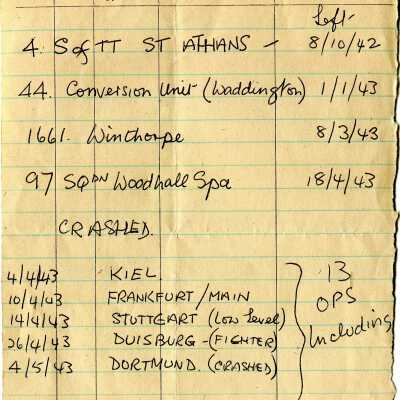 Left
4. S of TT ST ATHANS - 8/10/42
44. Conversion Unit (Waddington) 1/1/43
1661. Winthorpe 8/3/43
97 SQDN Woodhall Spa 18/4/43
CRASHED.
4/4/43 KIEL.
10/4/43 FRANKFURT/MAIN
14/4/43 STUTTGART (Low Level)
26/4/43 DUISBURG - (FIGHTER)
4/5/43 DORTMUND. (CRASHED)
13
OPS
Including